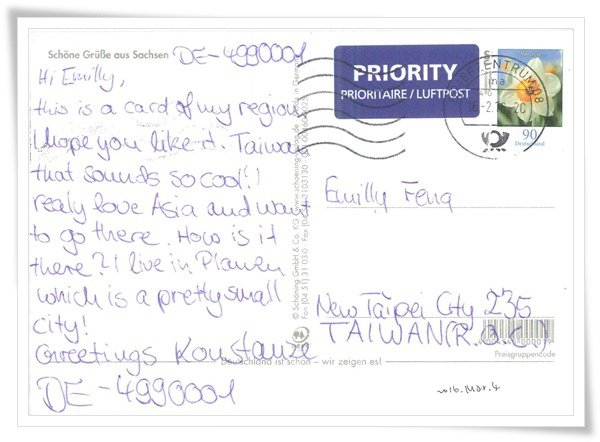 Schöne Grüße aus Sachsen
DE-4990001
Hi Emilly,
this is a card of my region
I hope you like it. Taiwan
that sounds so cool! I
realy love Asia and want
to go there. How is it
there? I live in Plauen
which is a pretty small
city!
Greetings Konstanze
DE-4990001
© Schöning GmbH & Co. KG
Deutschland ist schön – wir zeigen es!
PRIORITY
PRIORITAIRE / LUFTPOST
BRIEFZENTRUM 08
90
Deutschland
Emilly Feng
New Taipei City 235
TAIWAN (R.O.C.)
Preisgruppencode
2016. Mar. 4